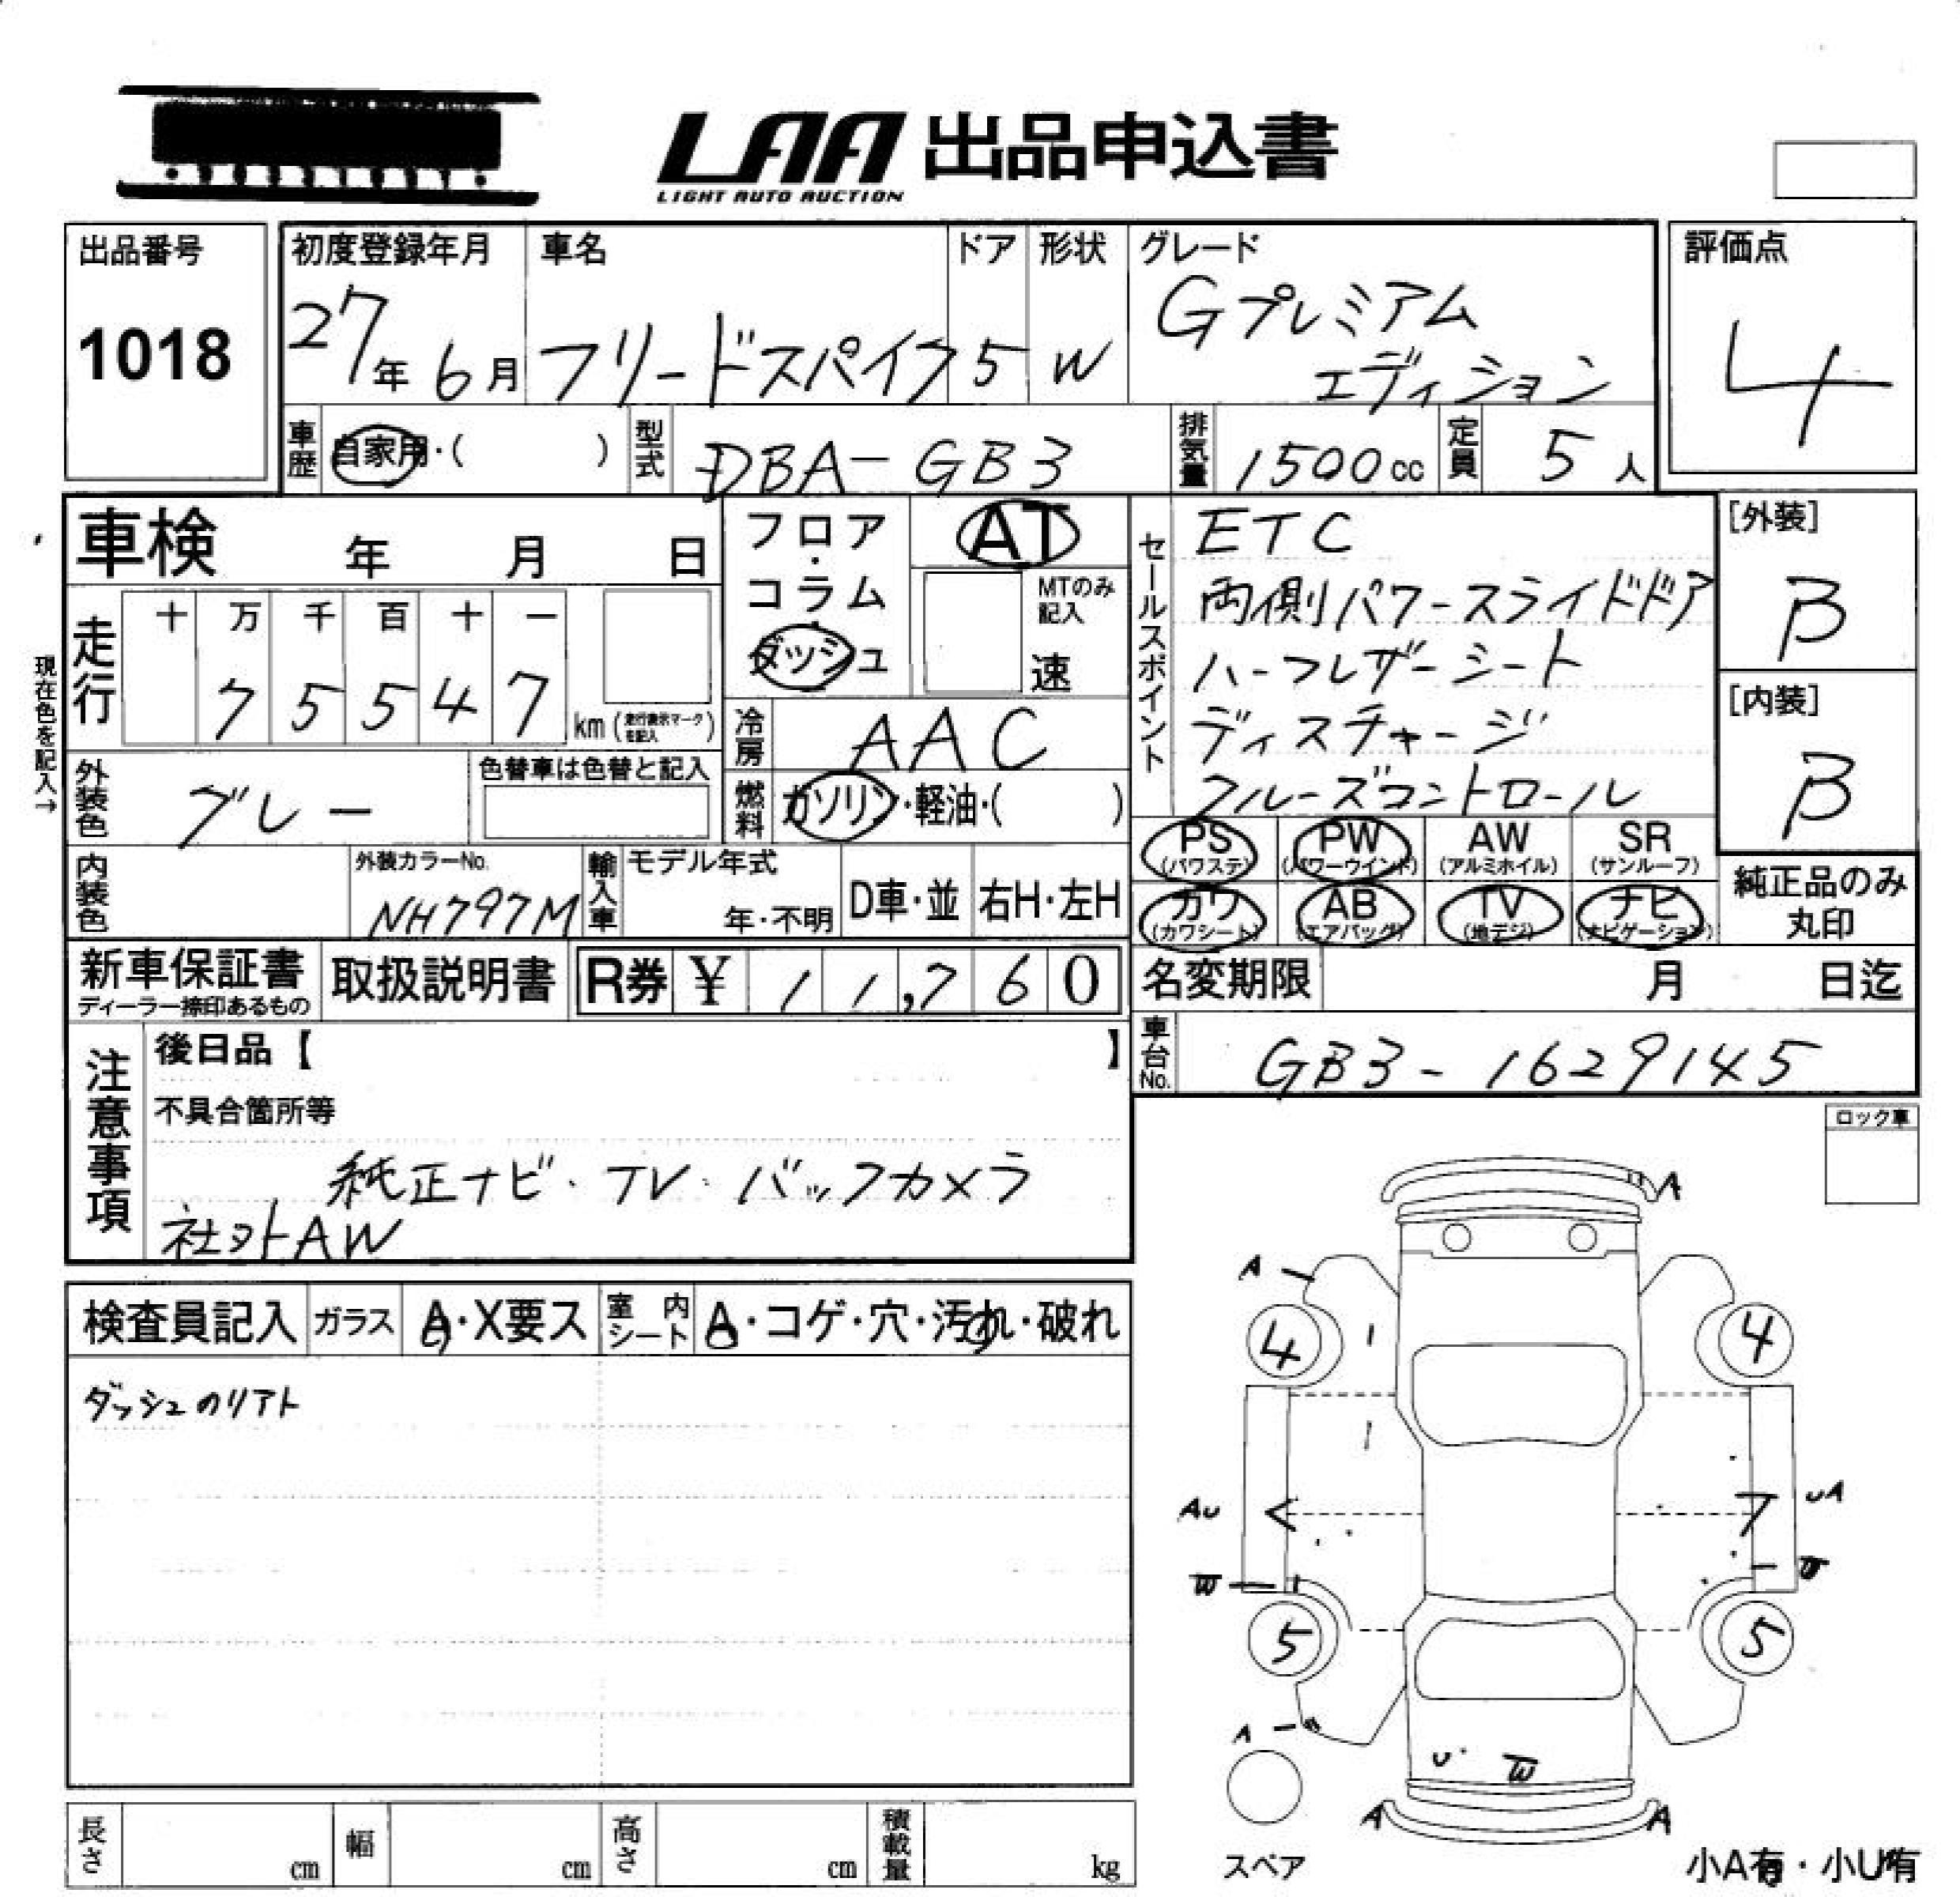 LAA 出品申込書
LIGHT AUTO AUCTION
出品番号
1018
初度登録年月
27年 6月
車名
フリードスパイク
ドア
5
形状
W
グレード
Gプレミアム
エディション
評価点
4
車歴
自家用・( )
型式
DBA-GB3
排気量
1500cc
定員
5人
車検 年 月 日
フロア・コラム・ダッシュ
AT
MTのみ記入
速
セールスポイント
ETC
両側パワースライドドア
ハーフレザーシート
ディスチャージ
クルーズコントロール
[外装]
B
[内装]
B
走行
十 万 千 百 十 一
7 5 5 4 7
km (走行表示マークを記入)
現在色を記入→
冷房
AAC
外装色
グレー
色替車は色替と記入
燃料
ガソリン・軽油・( )
PS (パワステ)
PW (パワーウインド)
AW (アルミホイル)
SR (サンルーフ)
カワ (カワシート)
AB (エアバッグ)
TV (地デジ)
ナビ (ナビゲーション)
純正品のみ
丸印
内装色
外装カラーNo.
NH797M
輸入車
モデル年式
年・不明
D車・並
右H・左H
新車保証書
ディーラー捺印あるもの
取扱説明書
R券 ¥ 11,760
名変期限 月 日迄
車台No.
GB3-1629145
注意事項
後日品【 】
不具合箇所等
純正ナビ・TV・バックカメラ
社外AW
ロック車
検査員記入
ガラス
A・X要ス
室内シート
A・コゲ・穴・汚れ・破れ
ダッシュのリアト
A
A
4
4
AU
UA
W
W
5
5
A
U
W
A
A
スペア
小A有・小U有
長さ cm
幅 cm
高さ cm
積載量 kg